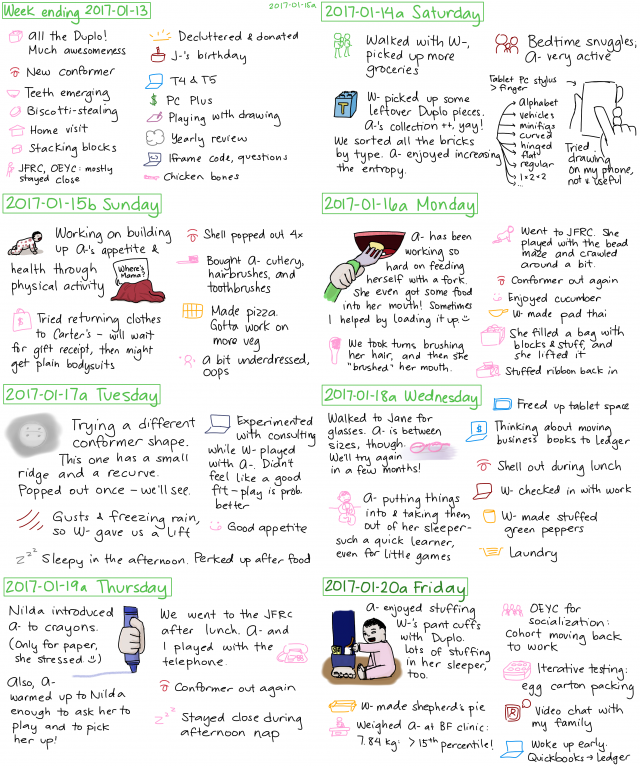 Week ending 2017-01-13
2017-01-15a
all the Duplo!
Much awesomeness
New conformer
Teeth emerging
Biscotti-stealing
Home visit
Stacking blocks
JFRC, OEYC: mostly
stayed close
Decluttered & donated
J-'s birthday
T4 & T5
PC Plus
Playing with drawing
Yearly review
Iframe code, questions
Chicken bones
2017-01-14a Saturday
Walked with W-,
picked up more
groceries
Bedtime snuggles;
A- very active
W- picked up some
leftover Duplo pieces.
A-'s collection ++, yay!
We sorted all the bricks
by type. A- enjoyed increasing
the entropy.
Tablet PC stylus
> finger
Alphabet
vehicles
minifigs
curved
hinged
flat
regular
1x2x2
...
Tried
drawing
on my phone,
not as useful
2017-01-15b Sunday
Working on building
up A-'s appetite &
health through
physical activity
Where's
Mama?
Tried returning clothes
to Carter's - will wait
for gift receipt, then might
get plain bodysuits
Shell popped out 4x
Bought A- cutlery,
hairbrushes, and
toothbrushes
Made pizza.
Gotta work on
more veg
A bit underdressed,
oops
2017-01-16a Monday
A- has been
working so
hard on feeding
herself with a fork.
She even got some food
into her mouth! Sometimes
I helped by loading it up
We took turns brushing
her hair, and then she
"brushed" her mouth.
Went to JFRC. She
played with the bead
maze and crawled
around a bit.
Conformer out again
Enjoyed cucumber
W- made pad thai
She filled a bag with
blocks & stuff, and
she lifted it
Stuffed ribbon back in
2017-01-17a Tuesday
Trying a different
conformer shape.
This one has a small
ridge and a recurve.
Popped out once - we'll see.
Gusts & freezing rain,
so W- gave us a lift
zzz Sleepy in the afternoon. Perked up after food
Experimented
with consulting
while W- played
with A-. Didn't
feel like a good
fit - play is prob.
better
Good appetite
2017-01-18a Wednesday
Walked to Jane for
glasses. A- is between
sizes, though.
We'll try again
in a few months!
A- putting things
into & taking them
out of her sleeper-
such a quick learner,
even for little games
Freed up tablet space
Thinking about moving
business books to Ledger
Shell out during lunch
W- checked in with work
W- made stuffed
green peppers
Laundry
2017-01-19a Thursday
Nilda introduced
A- to crayons.
(Only for paper,
she stressed)
Also, A-
warmed up to Nilda
enough to ask her to
play and to pick
her up!
We went to the JFRC
after lunch. A- and
I played with the
telephone.
Conformer out again
zzz Stayed close during
afternoon nap
2017-01-20a Friday
A- enjoyed stuffing
W-'s pant cuffs
with Duplo.
Lots of stuffing
in her sleeper,
too.
W- made shepherd's pie
Weighed A- at BF clinic:
7.84 kg. >15th percentile!
OEYC for
socialization:
Cohort moving back
to work
Iterative testing:
egg carton packing
Video chat with
my family
Woke up early.
Quickbooks → Ledger